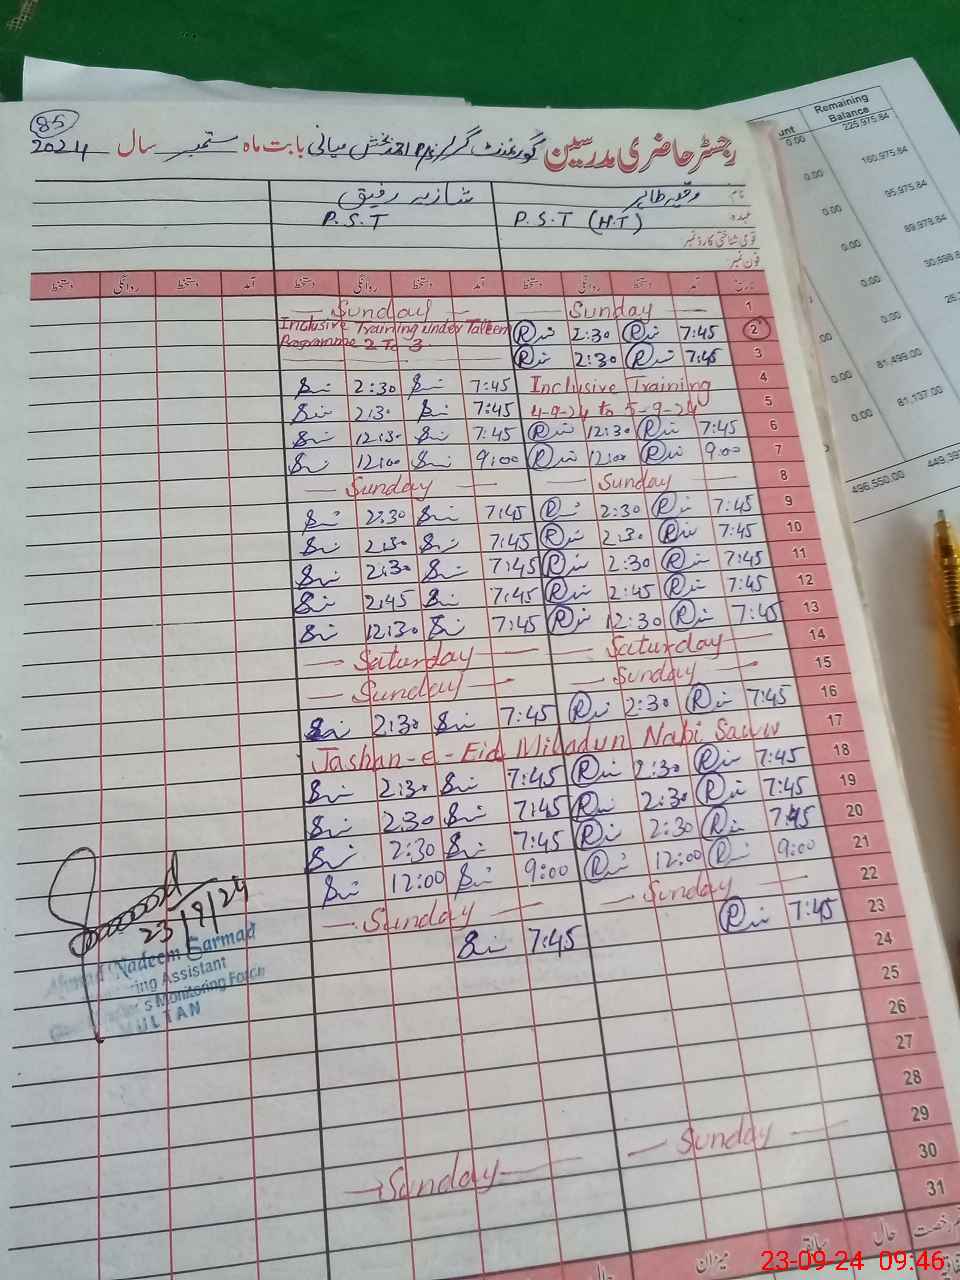 85
رجسٹر حاضری مدرسین گورنمنٹ گرلز P/S احمد بخش میانی بابت ماہ ستمبر سال 2024
نام رقیہ طاہر شازیہ رفیق
عہدہ P.S.T (H.T) P.S.T
قومی شناختی کارڈ نمبر
فون نمبر
تاریخ آمد دستخط روانگی دستخط آمد دستخط روانگی دستخط آمد دستخط روانگی دستخط
1 Sunday Sunday
2 7:45 2:30 Inclusive Training under Taleem
Programme 2 To 3
3 7:45 2:30
4 Inclusive Training 7:45 2:30
5 4-9-24 to 5-9-24 7:45 2:30
6 7:45 12:30 7:45 12:30
7 9:00 12:00 9:00 12:00
8 Sunday Sunday
9 7:45 2:30 7:45 2:30
10 7:45 2:30 7:45 2:30
11 7:45 2:30 7:45 2:30
12 7:45 2:45 7:45 2:45
13 7:45 12:30 7:45 12:30
14 Saturday Saturday
15 Sunday Sunday
16 7:45 2:30 7:45 2:30
17 Jashan-e-Eid Miladun Nabi Saww
18 7:45 2:30 7:45 2:30
19 7:45 2:30 7:45 2:30
20 7:45 2:30 7:45 2:30
21 9:00 12:00 9:00 12:00
22 Sunday Sunday
23 7:45 7:45
24
25
26
27
28
29 Sunday Sunday
30
31
23/9/24
Nadeem Sarmad
ring Assistant
's Monitoring Force
MULTAN
میزان سابقہ حال
Remaining
Balance
unt
0.00 225,975.84
0.00 160,975.84
0.00 95,975.84
0.00 89,978.84
0.00
0.00
0.00 81,499.00
0.00 81,137.00
496,550.00
23-09-24 09:46